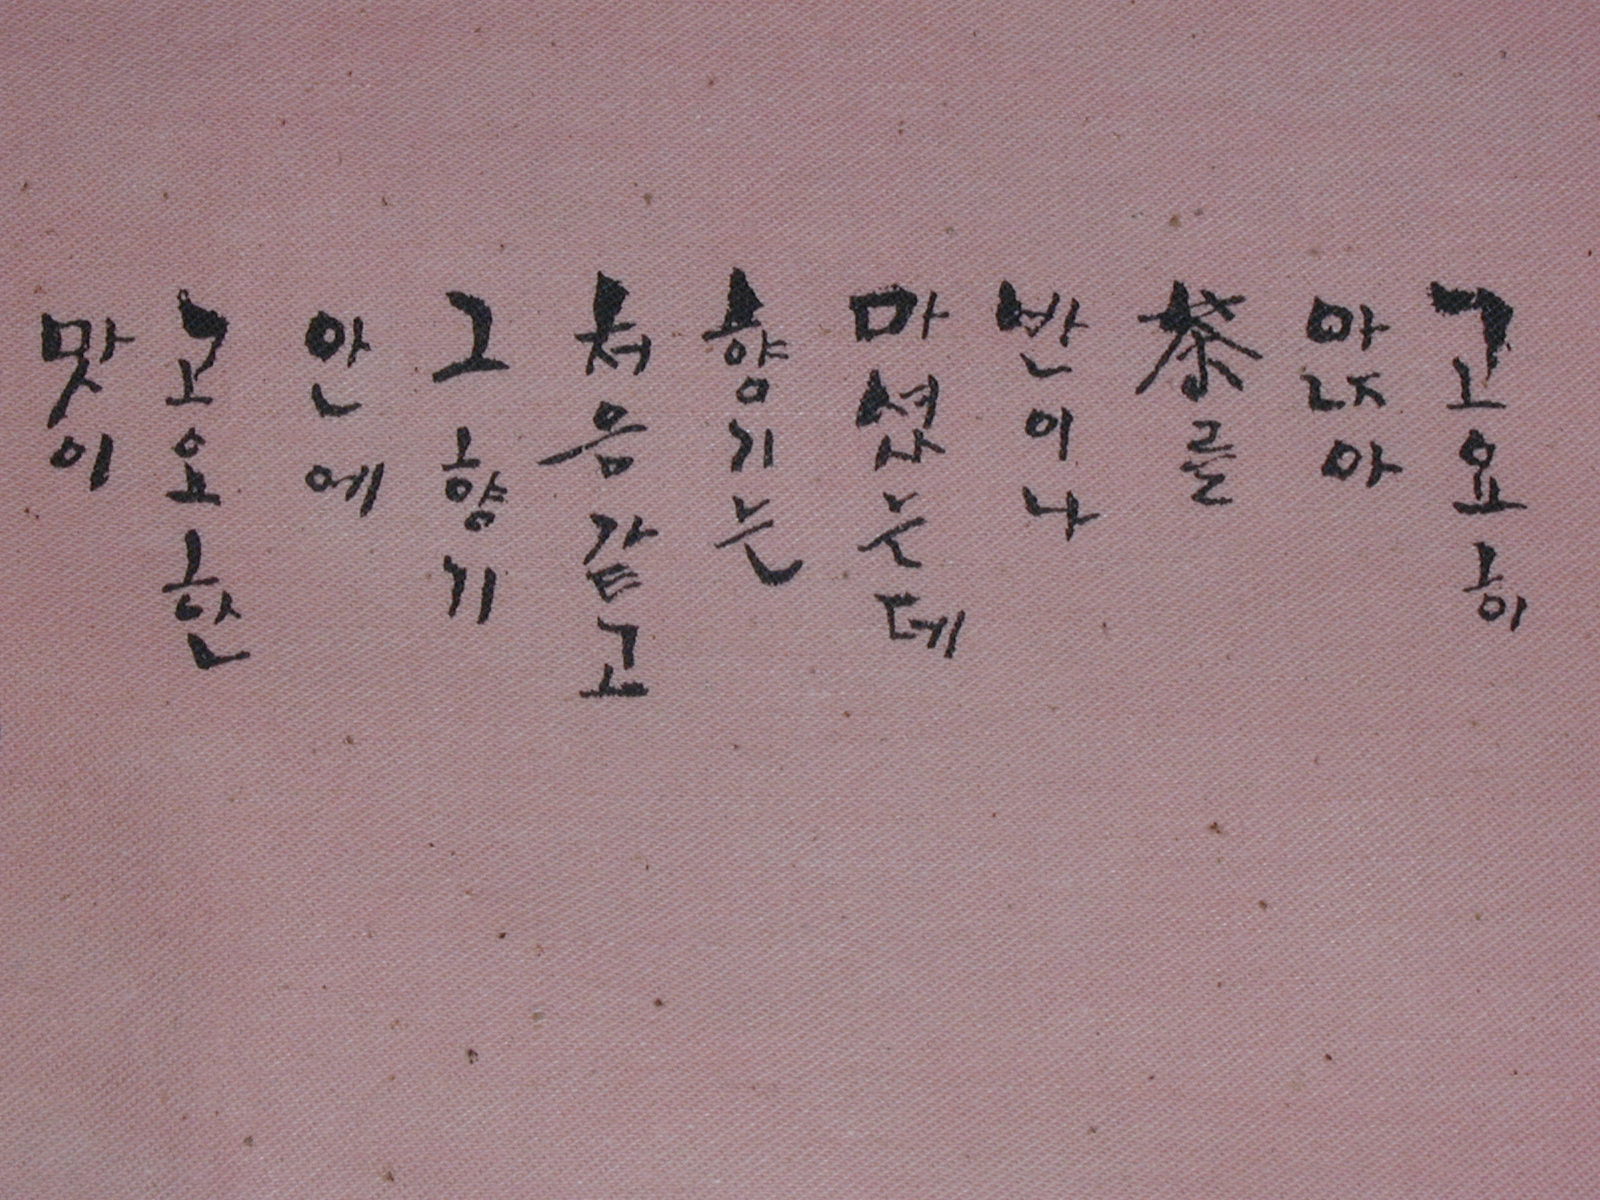 고요히
앉아
茶를
반이나
마셨는데
향기는
처음같고
그 향기
안에
고요한
맛이